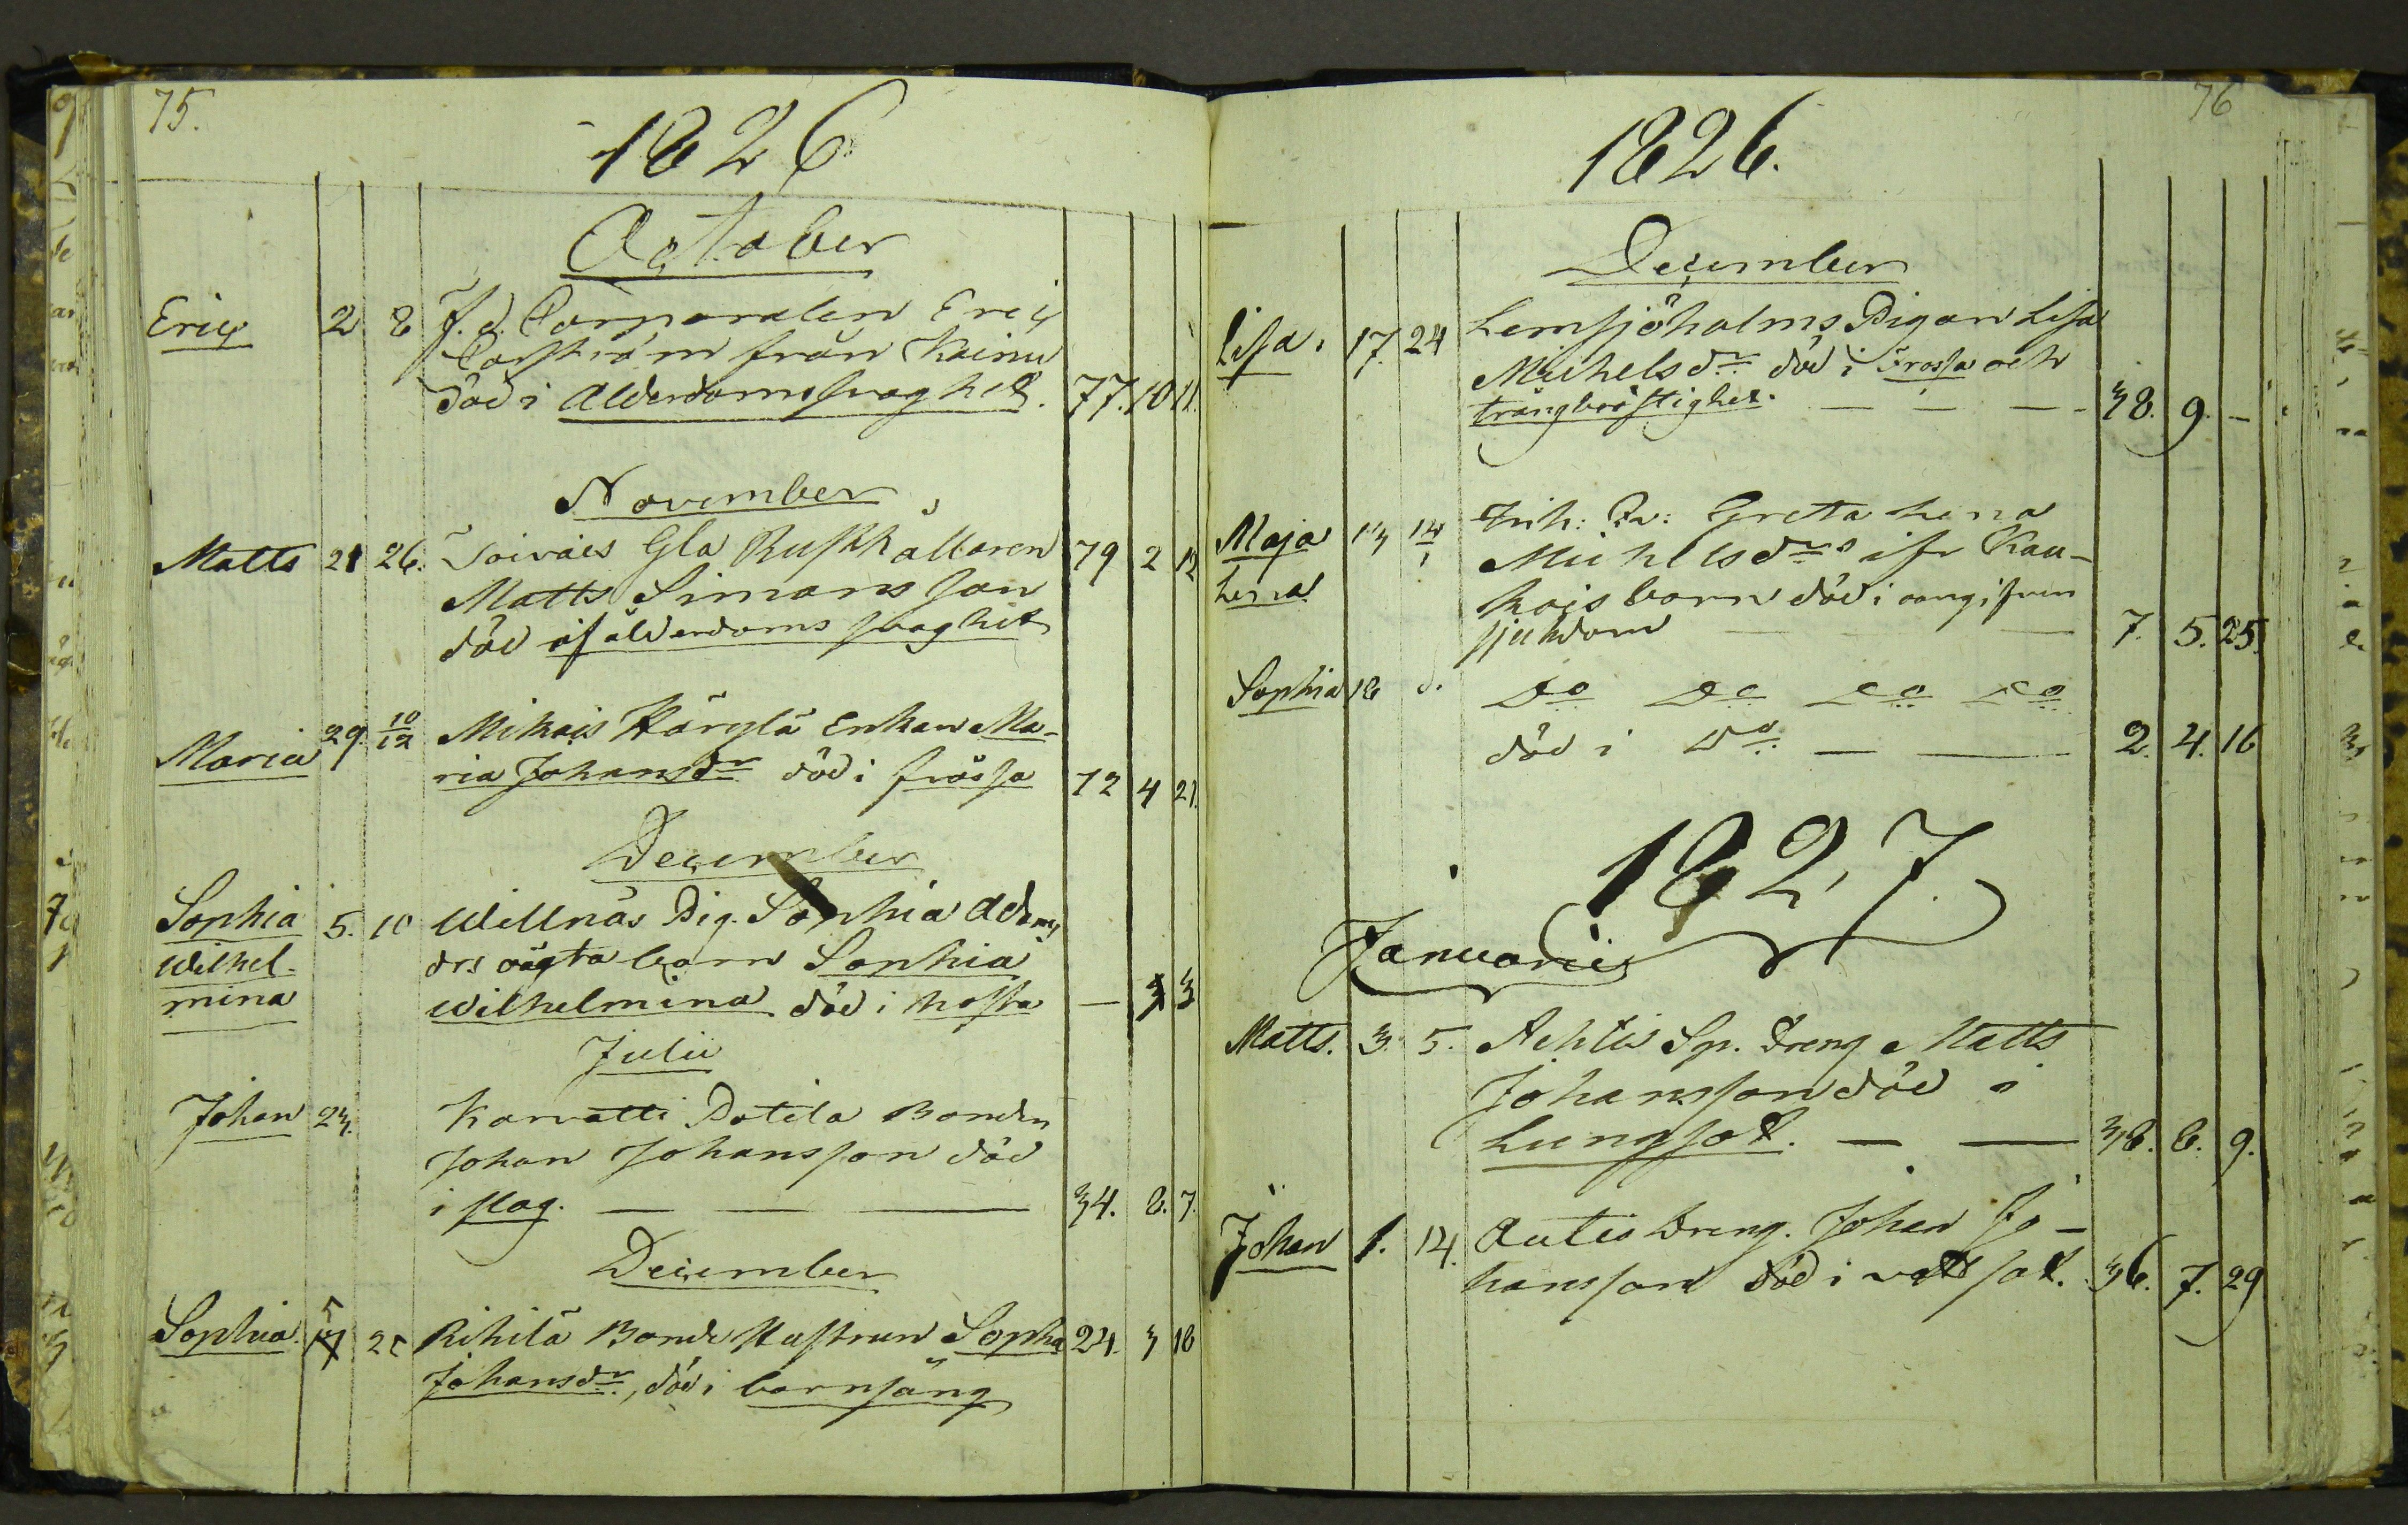 75.
1826
October
Eric 2 8 F. d. Corporalen Eric
från Kainu
död i Alderdomssvaghet. 77. 10 11.
November
Matts 21 26. Toivais Gla Rusthållaren 79 2 12
Matts Simonsson
död af ålderdoms svaghet
Maria 29. 10/12 Mikais Härylä Enkan Ma-
ria Johansdr död i frossa 72 4 21.
December
Sophia 5. 10 Willnäs Pig. Sophia Adams
Wilhel- drs oägta barn Sophia
mina Wilhelmina död i hosta — 3 3
Julii
Johan 23. Karvatti Potila Bonden
Johan Johansson död
i slag. — — — 34. 8. 7.
December
Sophia 5 25 Rihilä Bonde Hustrun Sopha 24. 3 18
Johansdr, död i barnsäng
76
1826.
December
Lisa. 17. 24 Lemsjöholms Pigan Lisa
Michelsdr död i Frossa och
trångbröstighet. — — — 38. 9. —
Maja 13 14/1 Inh: Qv: Greta Lena
Lena Michelsdrs ifr Kau-
kois barn död i oangifven
sjukdom — — 7. 5. 25.
Sophia 18 d. Do Do Do Do
död i Do — — 2. 4. 16
1827.
Januarii
Matts. 3. 5. Achtis Sp. Dreng Matts
Johansson död i
Lungsot. — — 38. 8. 9.
Johan 1. 14. Autis Dreng. Johan Jo-
hansson död i vattsot. 36. 7. 29